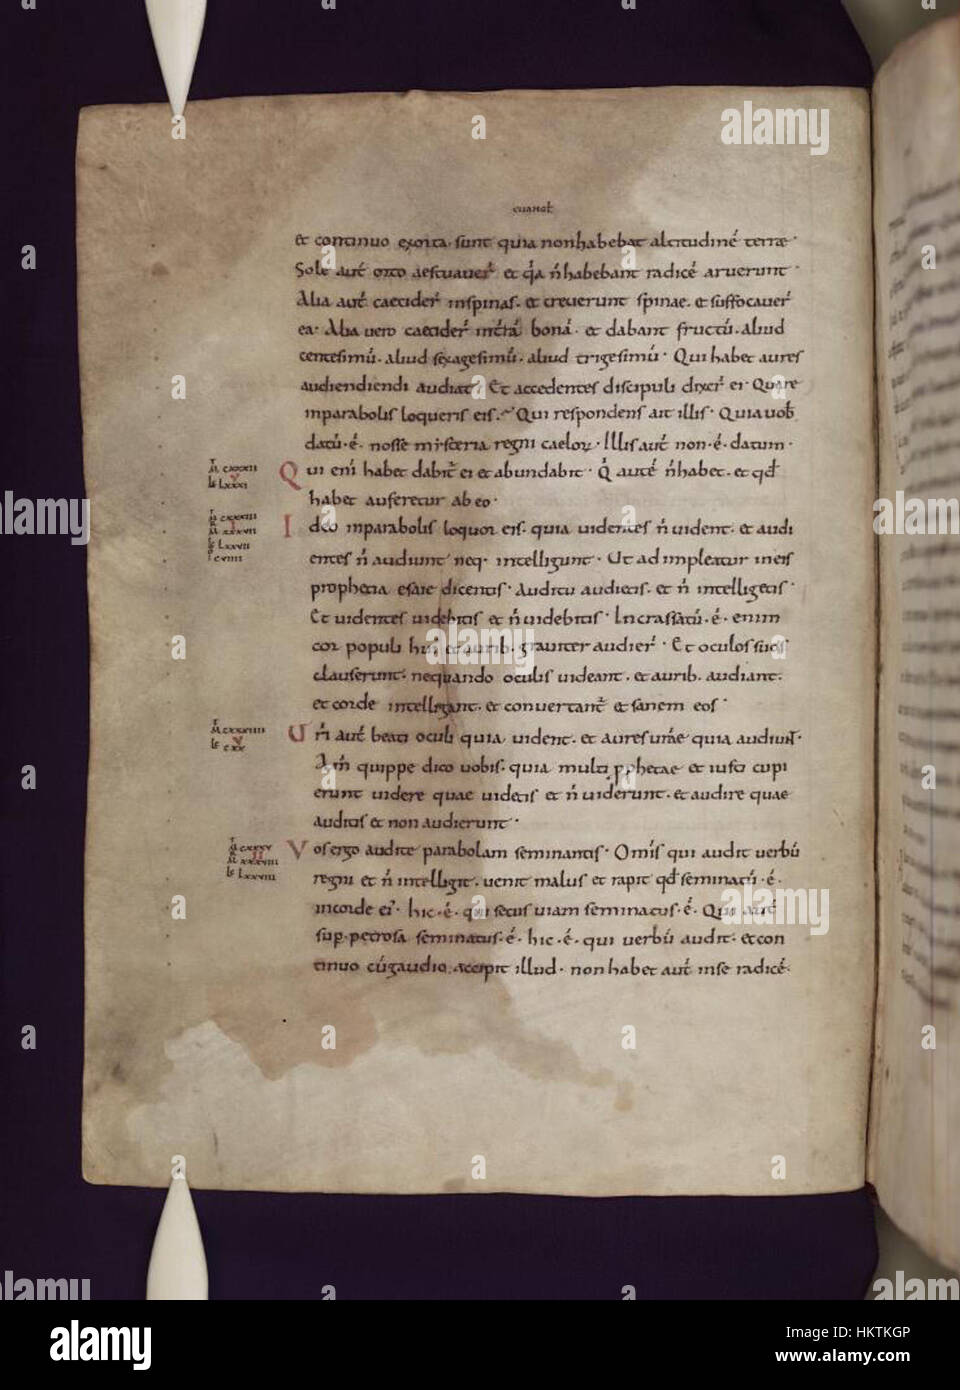 euangl
et continuo exorta sunt quia non habebat altitudinē terrae·
Sole aut̄ orto aestuauer̄ et q̄a n̄ habebant radicē aruerunt·
Alia aut̄ caecider̄ in spinas· et creuerunt spinae· et suffocauer̄
ea· Alia uero caecider̄ in t̄rā bonā· et dabant fructū· aliud
centesimū· aliud sexagesimū· aliud trigesimū· Qui habet aures
audiendiendi audiat; Et accedentes discipuli dixer̄ ei· Quare
in parabolis loqueris eis· Qui respondens ait illis· Quia uob̄
datū· ē· nosse misteria regni caeloꝝ· Illis aut̄ non· ē· datum·
Qui eni habet dabit̄ ei et abundabit· Q̄ aut̄ n̄ habet· et qd̄
habet auferetur ab eo·
Ideo in parabolis loquor eis· quia uidentes n̄ uident· et audi
entes n̄ audiunt neq· intelligunt· Ut adimpleatur in eis
prophetia esaie dicentis· Auditu audietis· et n̄ intelligetis·
Et uidentes uidebitis et n̄ uidebitis· Incrassatū· ē· enim
cor populi hui et aurib· grauiter audier̄· Et oculos suos
clauserunt· nequando oculis uideant· et aurib· audiant·
et corde intellegant· et conuertant̄ et sanem eos·
Ur̄i aut̄ beati oculi quia uident· et aures ur̄ae quia audiunt·
Am̄ quippe dico uobis· quia multi pphetae et iusti cupi
erunt uidere quae uidetis et n̄ uiderunt· et audire quae
auditis et non audierunt·
Vos ergo audite parabolam seminantis· Omīs qui audit uerbū
regni et n̄ intelligit· uenit malus et rapit qd̄ seminatū· ē·
in corde ei· hic· ē· qui secus uiam seminatus· ē· Qui aut̄
sup petrosa seminatus· ē· hic· ē· qui uerbū audit· et con
tinuo cū gaudio accipit illud· non habet aut̄ in se radicē·
M CXXXII
V
L LXXXI
M CXXXIII
I
M XXXVII
L LXXVII
I CVIIII
M CXXXIIII
V
L CXX
M CXXXV
II
M XXXVIII
L LXXVIII
alamy
a
alamy
Image ID: HKTKGP
www.alamy.com